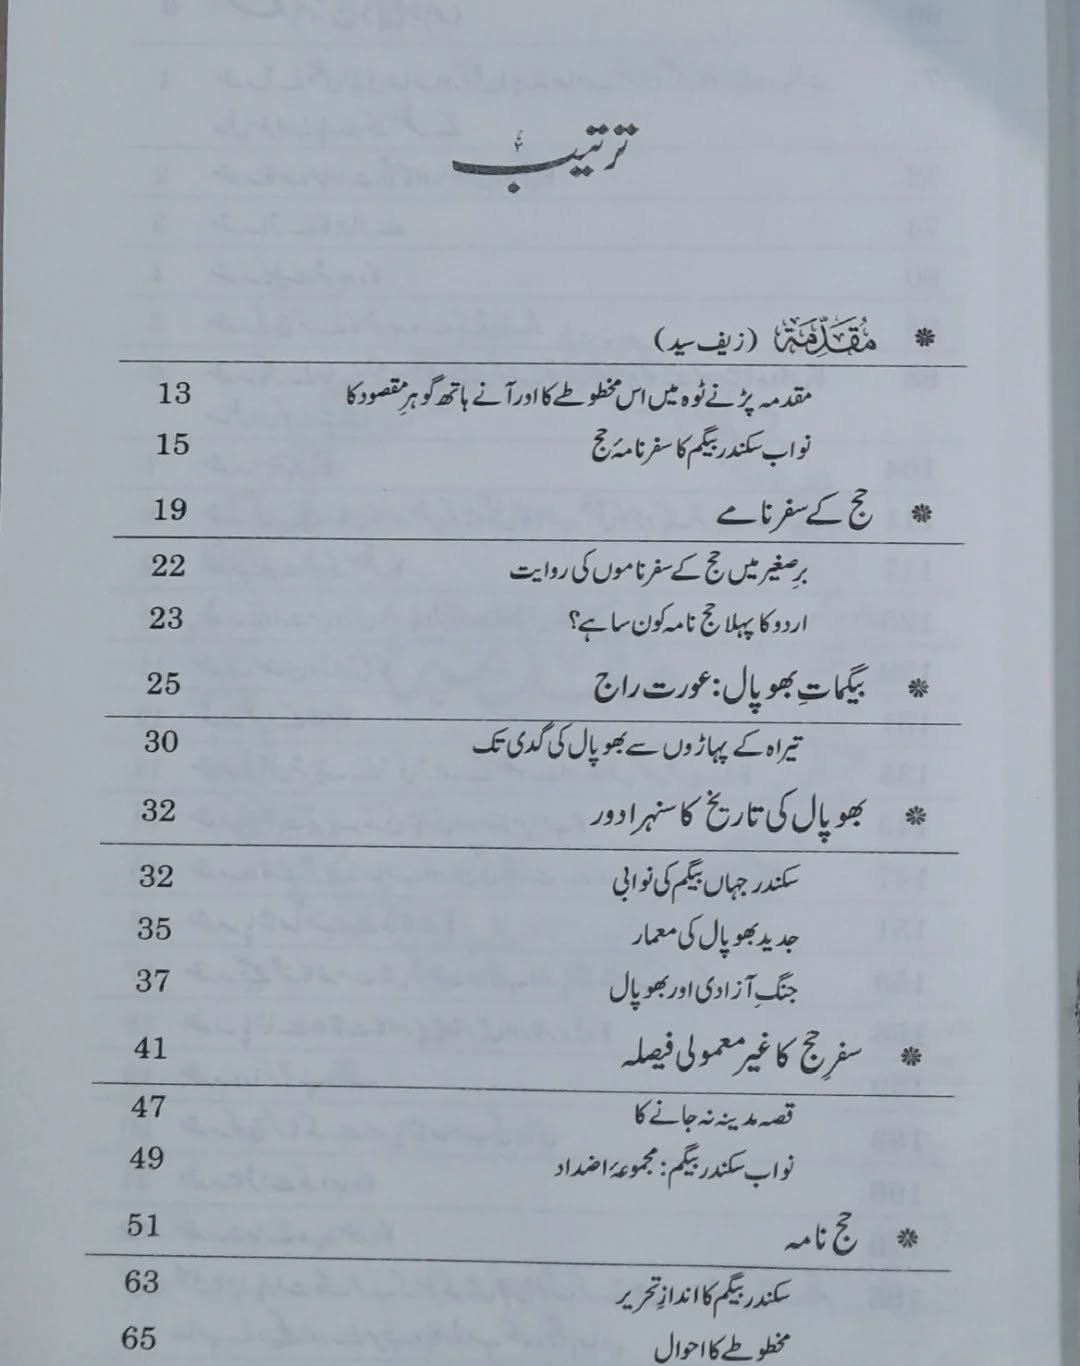 ترتیب
❋ مُقَدِّمَۃ (زیف سید)
مقدمہ پڑنے ٹوہ میں اس مخطوطے کا اور آنے ہاتھ گوہرِ مقصود کا 13
نواب سکندر بیگم کا سفرنامۂ حج 15
❋ حج کے سفرنامے 19
برِصغیر میں حج کے سفرناموں کی روایت 22
اردو کا پہلا حج نامہ کون سا ہے؟ 23
❋ بیگماتِ بھوپال: عورت راج 25
تیراہ کے پہاڑوں سے بھوپال کی گدی تک 30
❋ بھوپال کی تاریخ کا سنہرا دور 32
سکندر جہاں بیگم کی نوابی 32
جدید بھوپال کی معمار 35
جنگِ آزادی اور بھوپال 37
❋ سفرِ حج کا غیر معمولی فیصلہ 41
قصہ مدینہ نہ جانے کا 47
نواب سکندر بیگم: مجموعۂ اضداد 49
❋ حج نامہ 51
سکندر بیگم کا اندازِ تحریر 63
مخطوطے کا احوال 65